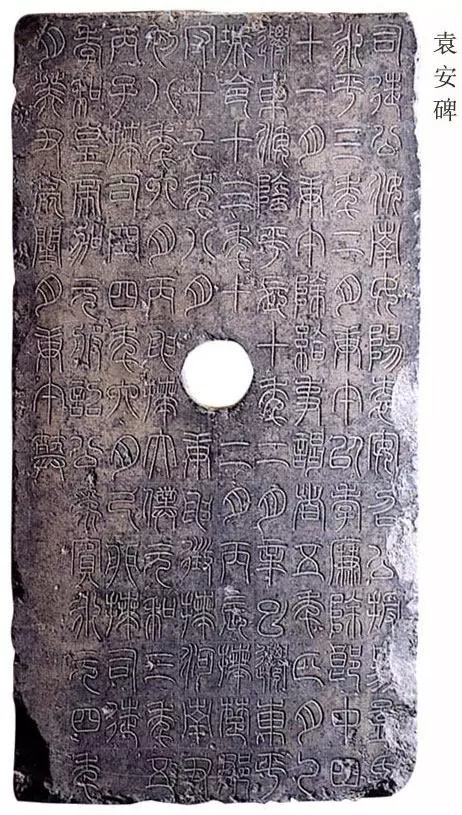 袁安碑
司徒公汝南女陽袁安召公授易孟氏
永平三年二月庚午以孝廉除郎中四
十一月庚午除給事謁者五年四月乙
遷東海陰平長十年二月辛巳遷東平
城令十三年十二月丙辰拜楚郡
守十七年八月庚申徵拜河南尹
初八年六月丙申拜太僕元和三年五
丙子拜司空四年六月己卯拜司徒
孝和皇帝加元服詔公為賓永元四年
月癸丑薨閏月庚午葬